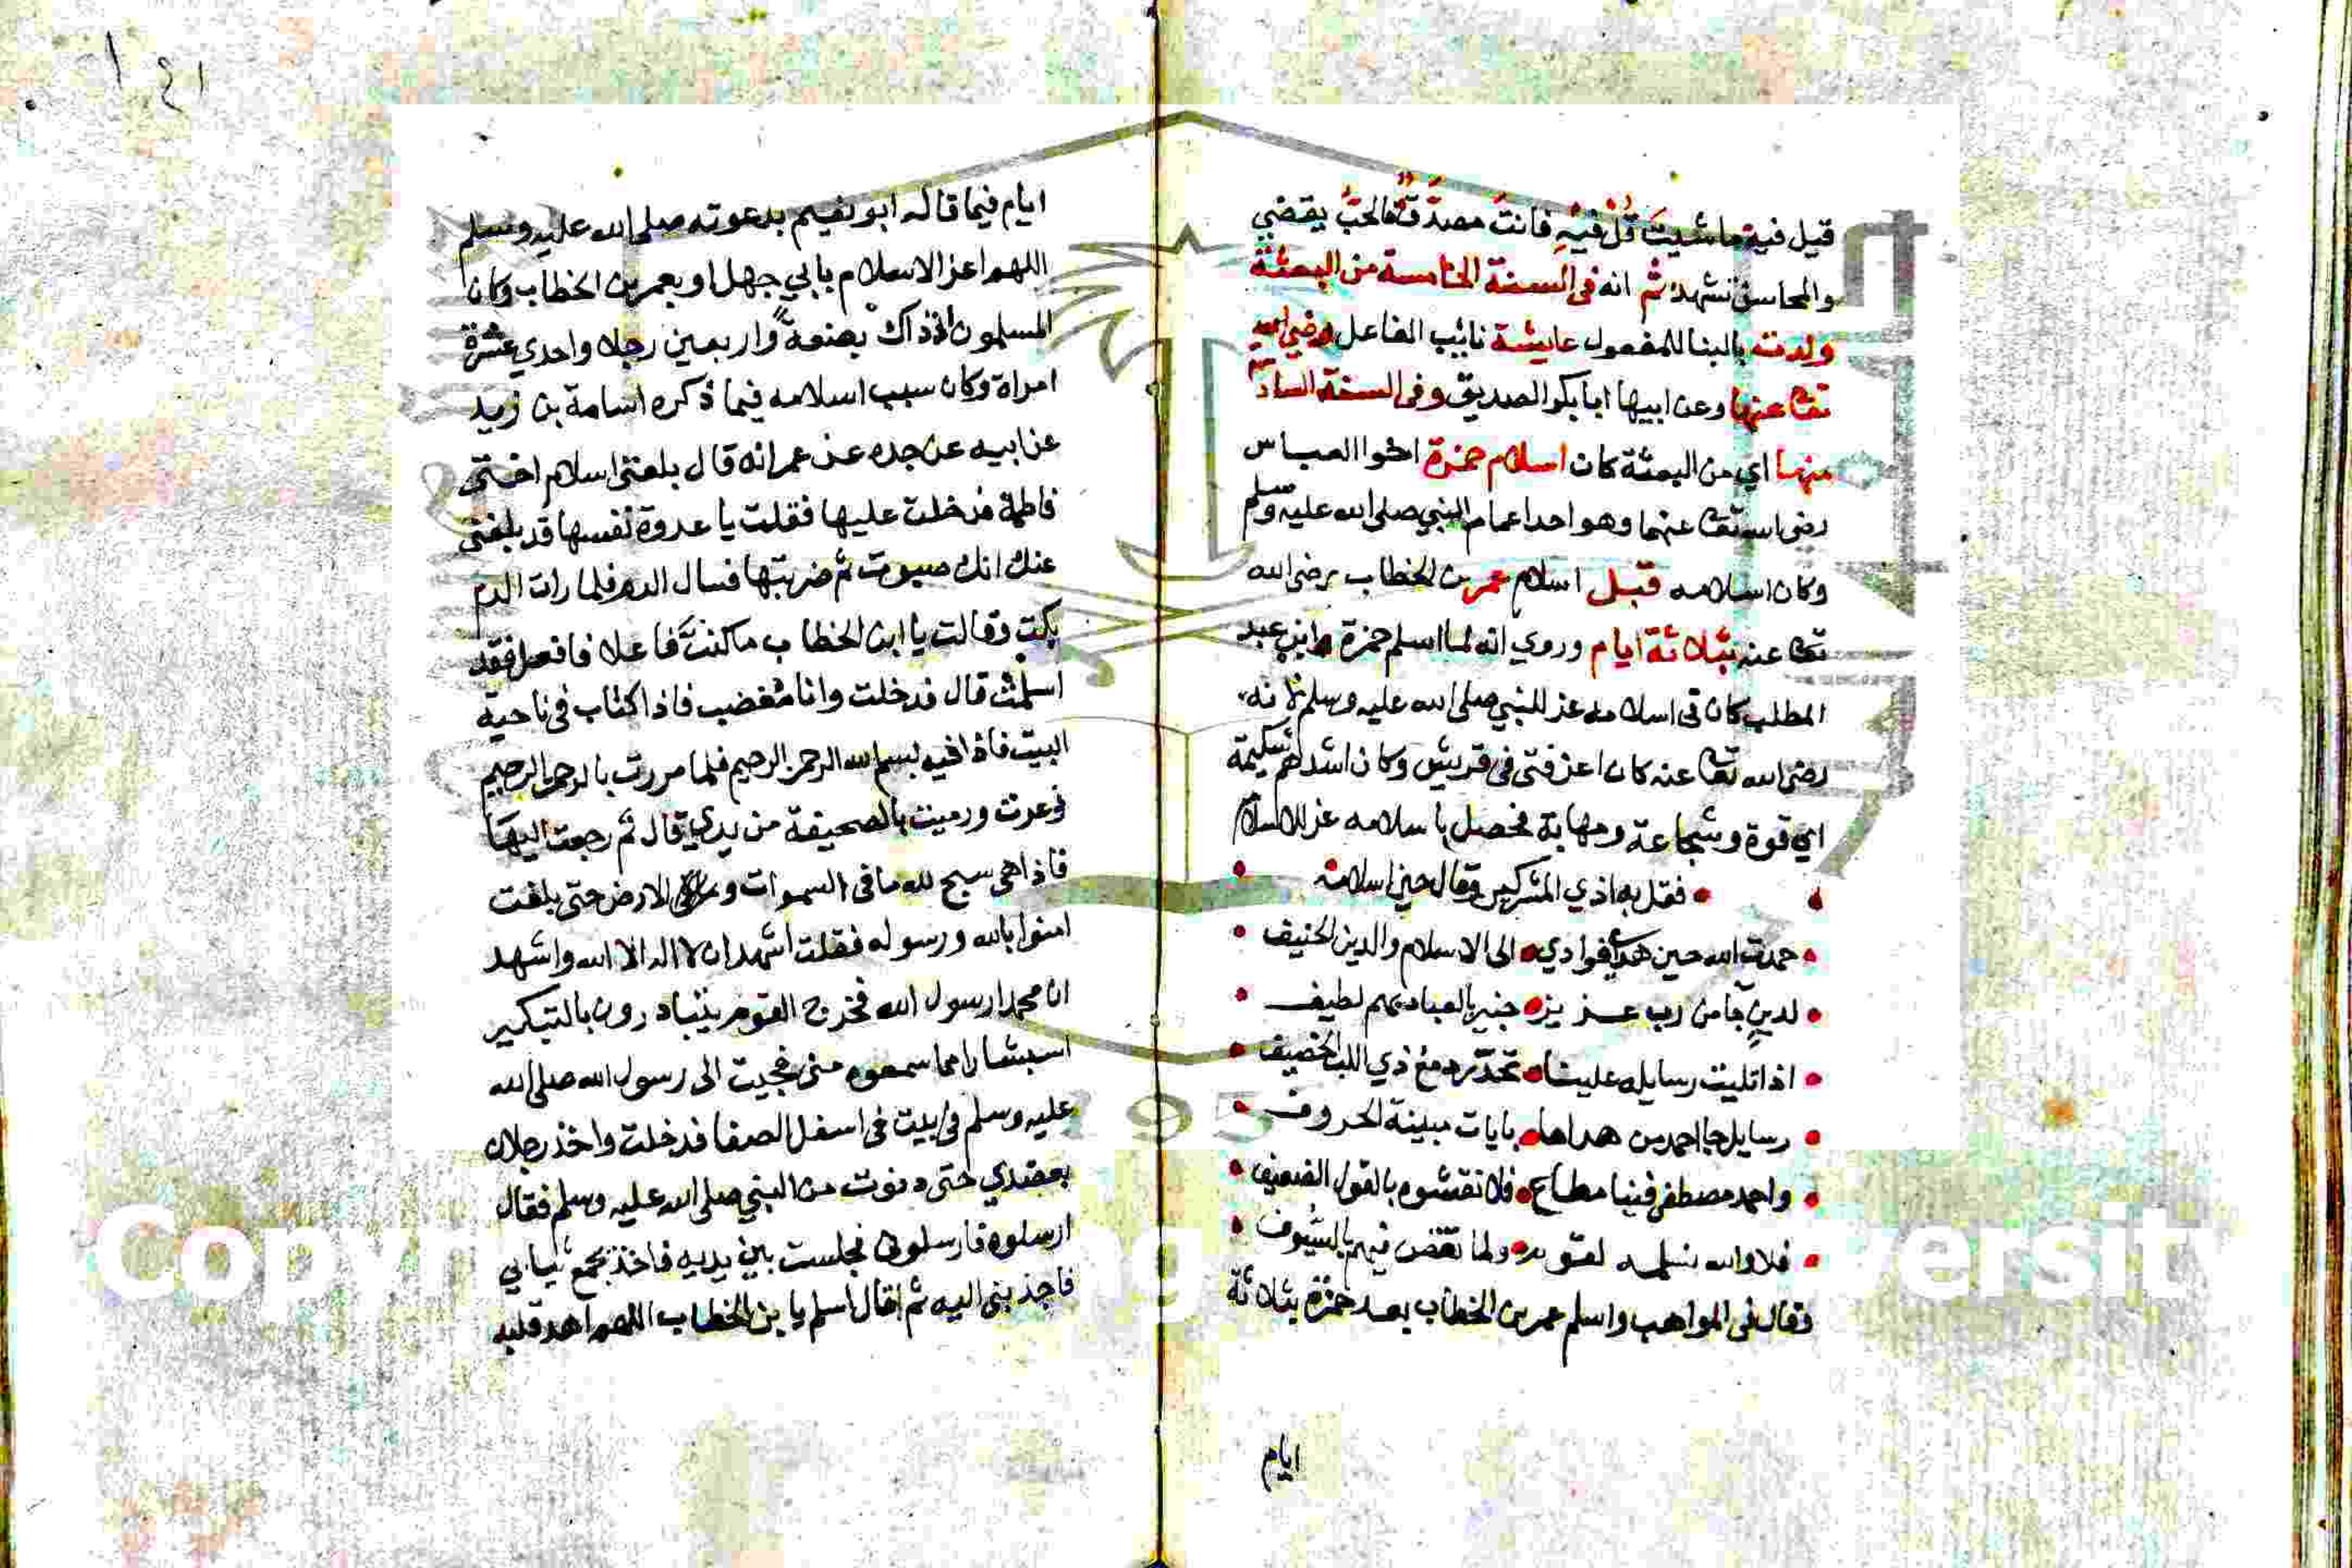 قيل فيه ما شيت قل فيه فانت مصدق فالحب يقضي
والمحاسن تشهد ثم انه في السنة الخامسة من البعثة
ولدت بالبنا للمفعول عايشة نائب الفاعل رضي الله
تعا عنها وعن ابيها ابا بكر الصديق وفي السنة الساد
منها اي من البعثة كان اسلام حمزة اخوا العباس
رضي الله تعا عنهما وهو احد اعمام النبي صلى الله عليه وسلم
وكان اسلامه قبل اسلام عمر بن الخطاب رضي الله
تعا عنه بثلاثة ايام وروي انه لما اسلم حمزة ابن عبد
المطلب كان في اسلامه عز للنبي صلى الله عليه وسلم لانه
رضي الله تعا عنه كان اعز فتى في قريش وكان اشدهم شكيمة
اي قوة وشجاعة ومهابة فحصل باسلامه عز للاسلام
فقل به اذي المشركين وقال حين اسلامه
حمدت الله حين هدى فوادي الى الاسلام والدين الحنيف
لدين جا من رب عزيز خبير بالعباد بهم لطيف
اذا تليت رسايله علينا تحدر دمع ذي اللب الحصيف
رسايل جا احمد من هداها بايات مبينة الحروف
واحمد مصطفى فينا مطاع فلا تقشوه بالقول الضعيف
فلا والله نسلمه لقوم ولما نقض فيهم بالسيوف
وقال في المواهب واسلم عمر بن الخطاب بعد حمزة بثلاثة
ايام
١٤١
ايام فيما قاله ابو نعيم بدعوته صلى الله عليه وسلم
اللهم اعز الاسلام بابي جهل او بعمر بن الخطاب وكان
المسلمون اذ ذاك بضعة واربعين رجلا واحدي عشرة
امراة وكان سبب اسلامه فيما ذكره اسامة بن زيد
عن ابيه عن جده عن عمر انه قال بلغني اسلام اختي
فاطمة فدخلت عليها فقلت يا عدوة نفسها قد بلغني
عنك انك صبوت ثم ضربتها فسال الدم فلما رات الدم
بكت وقالت يا ابن الخطاب ما كنت فاعلا فافعل فقد
اسلمت قال فدخلت وانا مغضب فاذا كتاب في ناحية
البيت فاذا فيه بسم الله الرحمن الرحيم فلما مررت بالرحمن الرحيم
ذعرت ورميت بالصحيفة من يدي قال ثم رجعت اليها
فاذا هي سبح لله ما في السموات وما في الارض حتى بلغت
امنوا بالله ورسوله فقلت اشهد ان لا اله الا الله واشهد
ان محمدا رسول الله فخرج القوم يتبادرون بالتبكير
استبشارا مما سمعوه مني فجيت الى رسول الله صلى الله
عليه وسلم في بيت في اسفل الصفا فدخلت واخذ رجلان
بعضدي حتى دنوت من النبي صلى الله عليه وسلم فقال
ارسلوه فارسلوني فجلست بين يديه فاخذ بمجمع ثيابي
فاجذبني اليه ثم قال اسلم يا بن الخطاب اللهم اهد قلبه